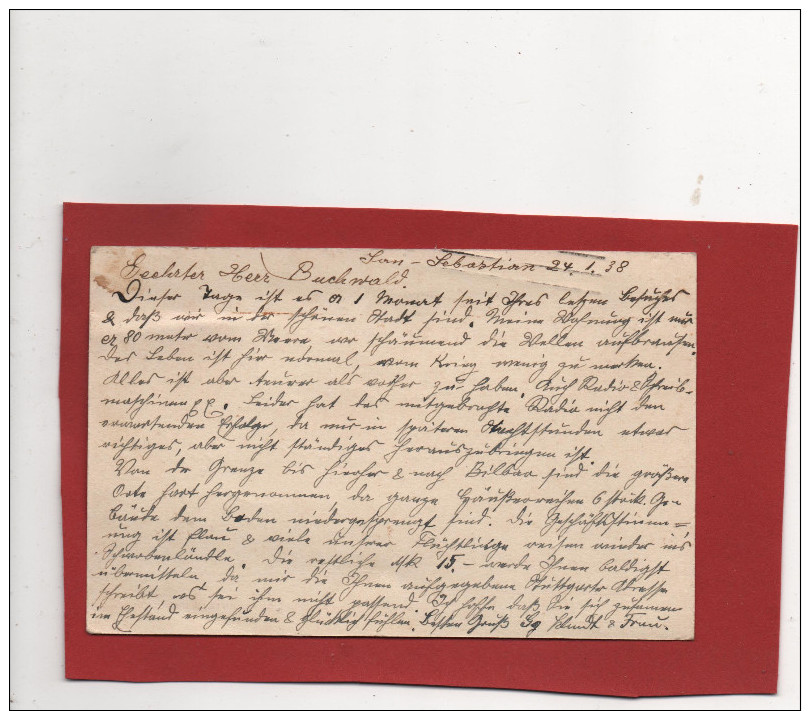 San-Sebastian 24.1.38
Geehrter Herr Buchwald.
Dieser Tage ist es a 1 Monat seit Ihres letzen Besuches
& daß wir in der schönen Stadt sind. Meine Wohnung ist nur
cr 80 meter vom Meere, wo schäumend die Wellen aufbrausen.
Das Leben ist hir normal, vom Krieg wenig zu merken.
Alles ist aber teurer als vorher zu haben. Auch Radio & Schreib-
maschinen. Leider hat das mitgebrachte Radio nicht den
erwartenden Erfolge, da nur in späteren Nachtstunden etwas
richtiges, aber nicht ständiges herauszubringen ist.
Von der Grenze bis hierher & nach Bilbao sind die größere
Orte hart hergenommen, da ganze Häuserreihen 6 stöck. Ge-
bäude dem Boden niedergesprengt sind. Die Geschäftsstimm=
ung ist flau & viele unserer Flüchtlinge reisen wieder in's
Schwabenländle. Die restliche Mk 15.- werde Ihnen baldigst
übermitteln, da mir die Ihnen aufgegebene Stuttgarter Adresse
schreibt es sei ihm nicht passend. Ich hoffe daß Sie sich zusammen
im Ehestand eingefunden & glücklich fühlen. Besten Gruß & Frau.